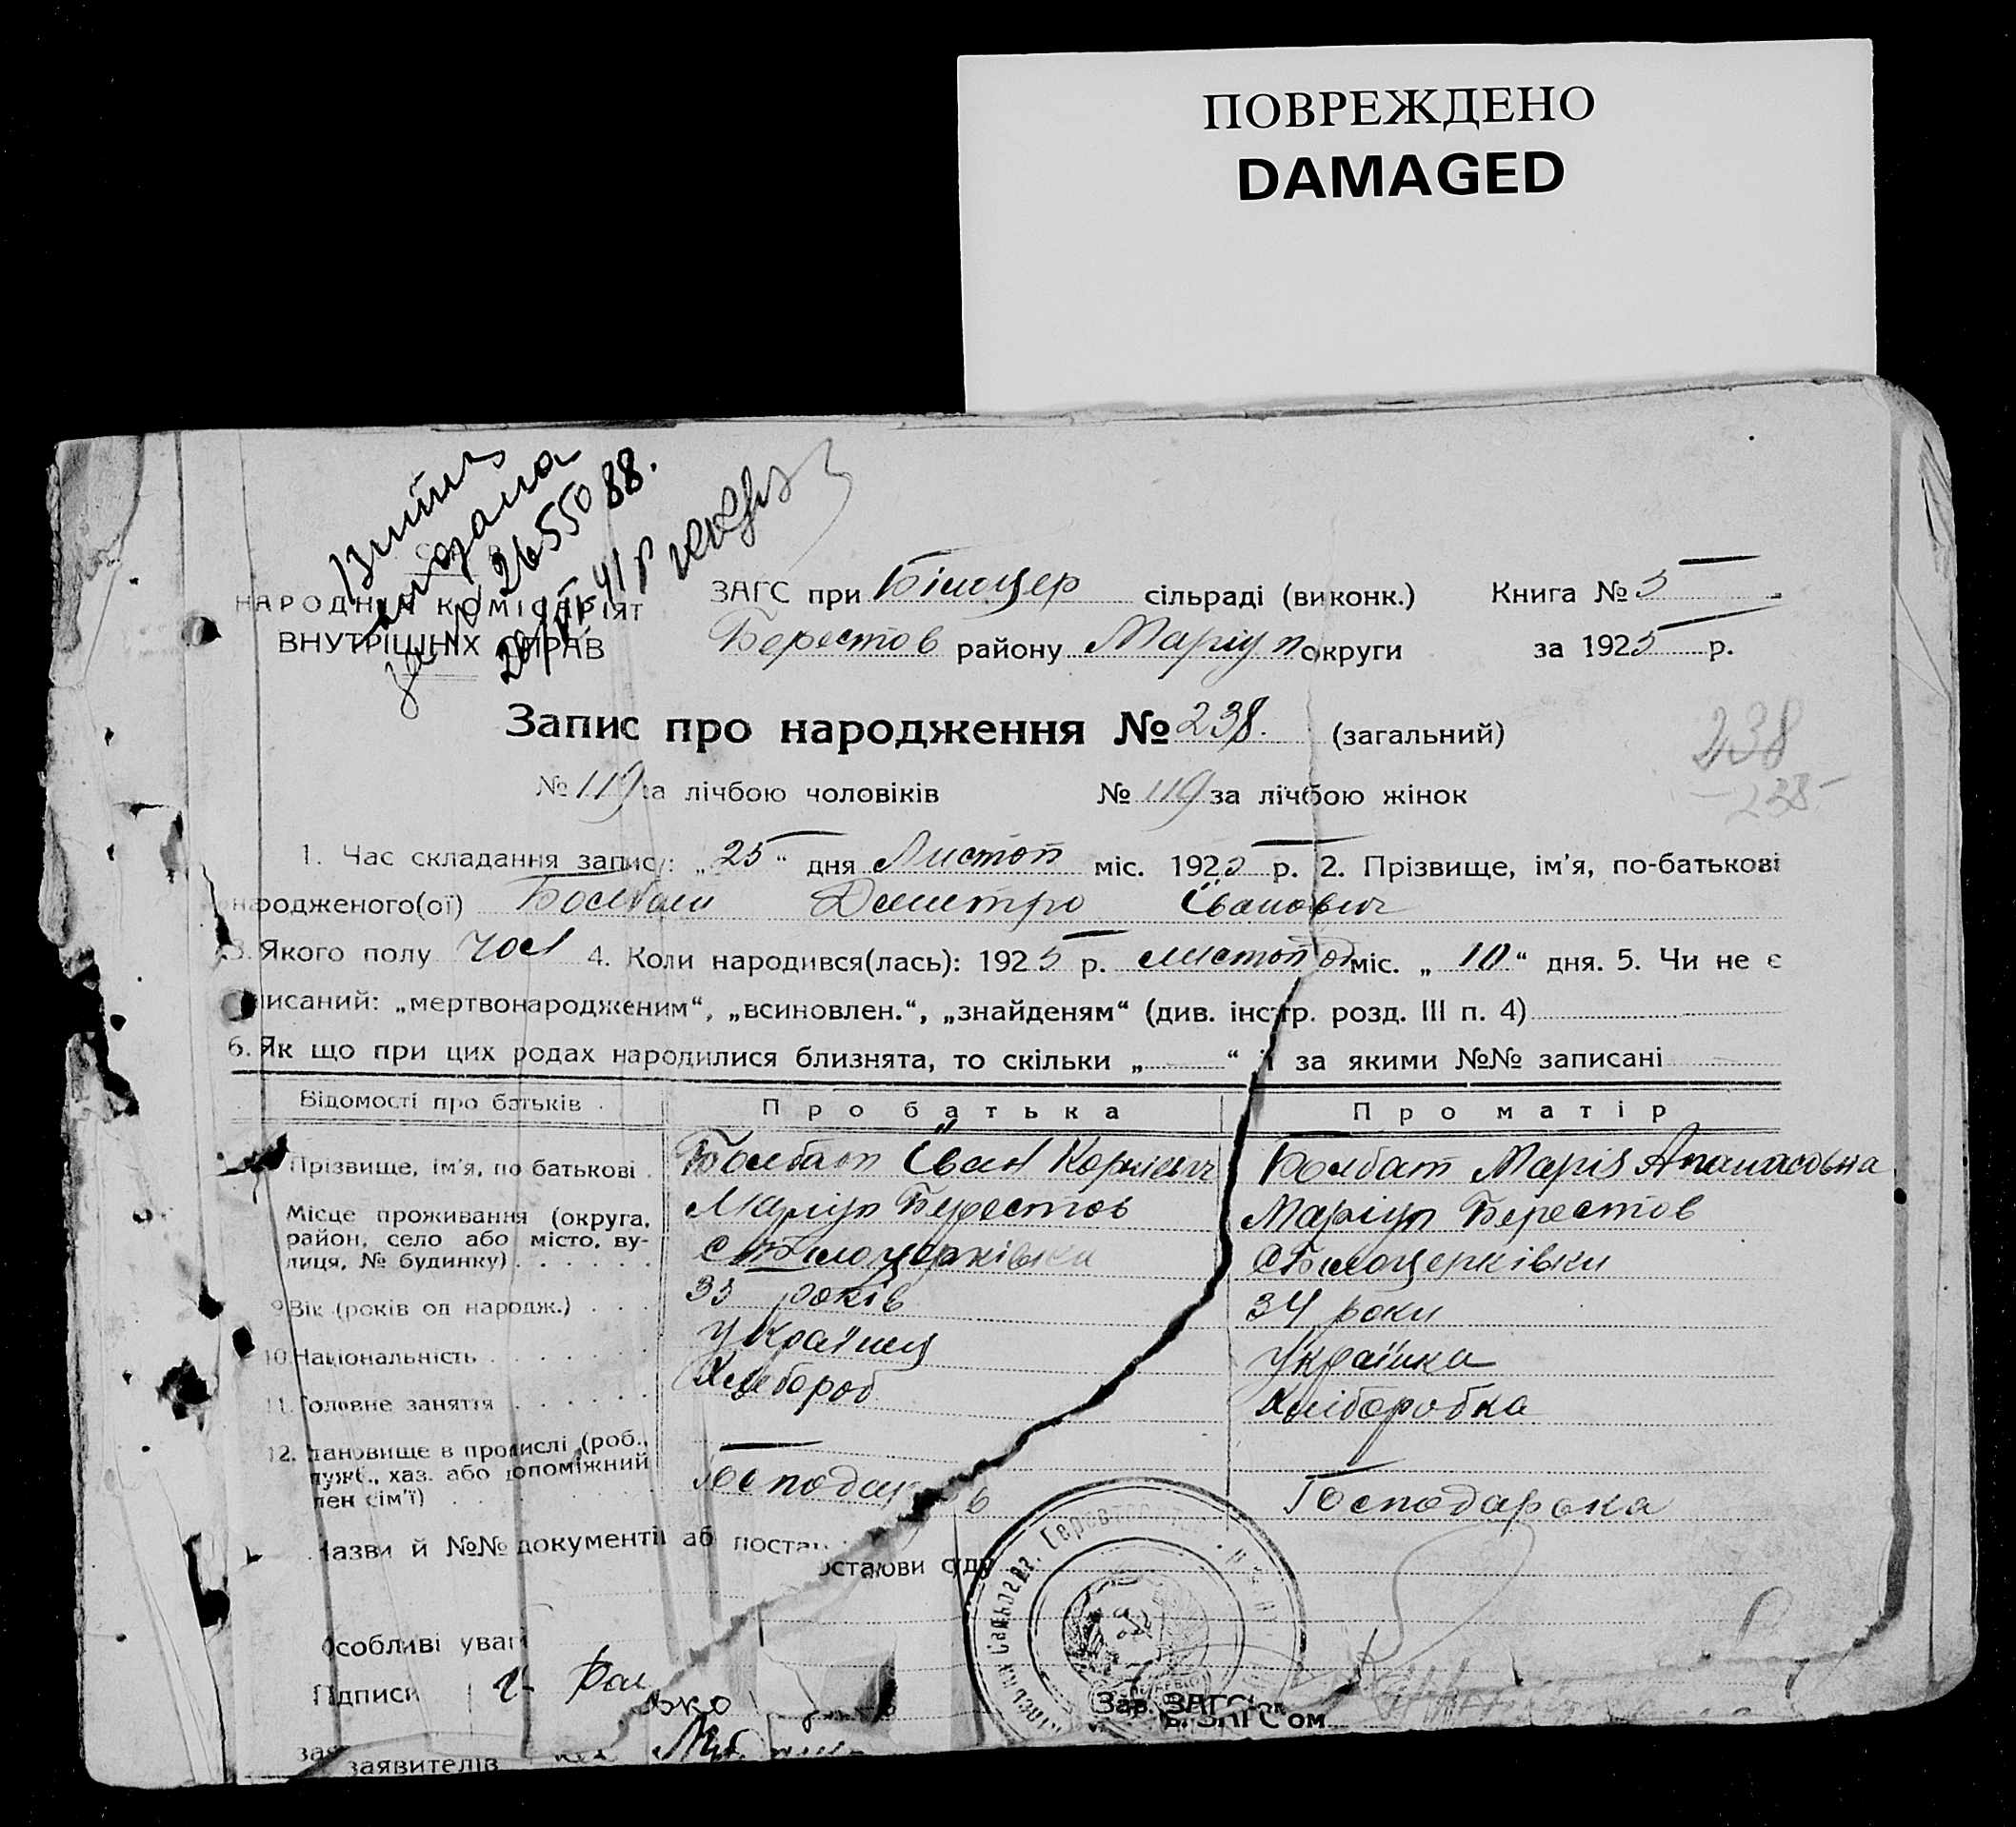 ПОВРЕЖДЕНО
DAMAGED
за № 2655088.
НАРОДНІЙ КОМІСАРІЯТ
ВНУТРІШНІХ СПРАВ
ЗАГС при Білоцер сільраді (виконк.) Книга № 5
Берестов району Маріуп округи за 1925 р.
Запис про народження № 238. (загальний)
238
№ 119 за лічбою чоловіків № 119 за лічбою жінок
238
1. Час складання запису: „25“ дня Листоп міс. 1925 р. 2. Прізвище, ім’я, по-батькові
народженого(ої) Дмитро Іванович
3. Якого полу чол 4. Коли народився(лась): 1925 р. листопад міс. „10“ дня. 5. Чи не є
писаний: „мертвонародженим“, „всиновлен.“, „знайденям“ (див. інстр. розд. III п. 4)
6. Як що при цих родах народилися близнята, то скільки „ — “ й за якими №№ записані
Відомості про батьків Про батька Про матір
Прізвище, ім’я, по батькові Болбат Іван Корнієвич Болбат Марія Апанасовна
Місце проживання (округа, район, село або місто, вулиця, № будинку) Маріуп Берестов Маріуп Берестов
с Білоцерківки с Білоцерківки
9. Вік (років од народж.) 35 років 34 роки
10. Національність Українец Українка
11. Головне заняття Хлібороб Хліборобка
12. тановище в промислі (роб., служб., хаз. або допоміжний
член сім’ї) Господар Господарока
Назви й №№ документів аб постан
остаови суду
Особливі уваги
Підписи
Зав. ЗАГС'ом
заявителів